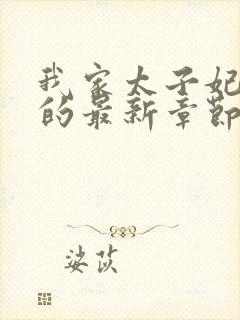 我家太子妃
的最新章節
婆茨